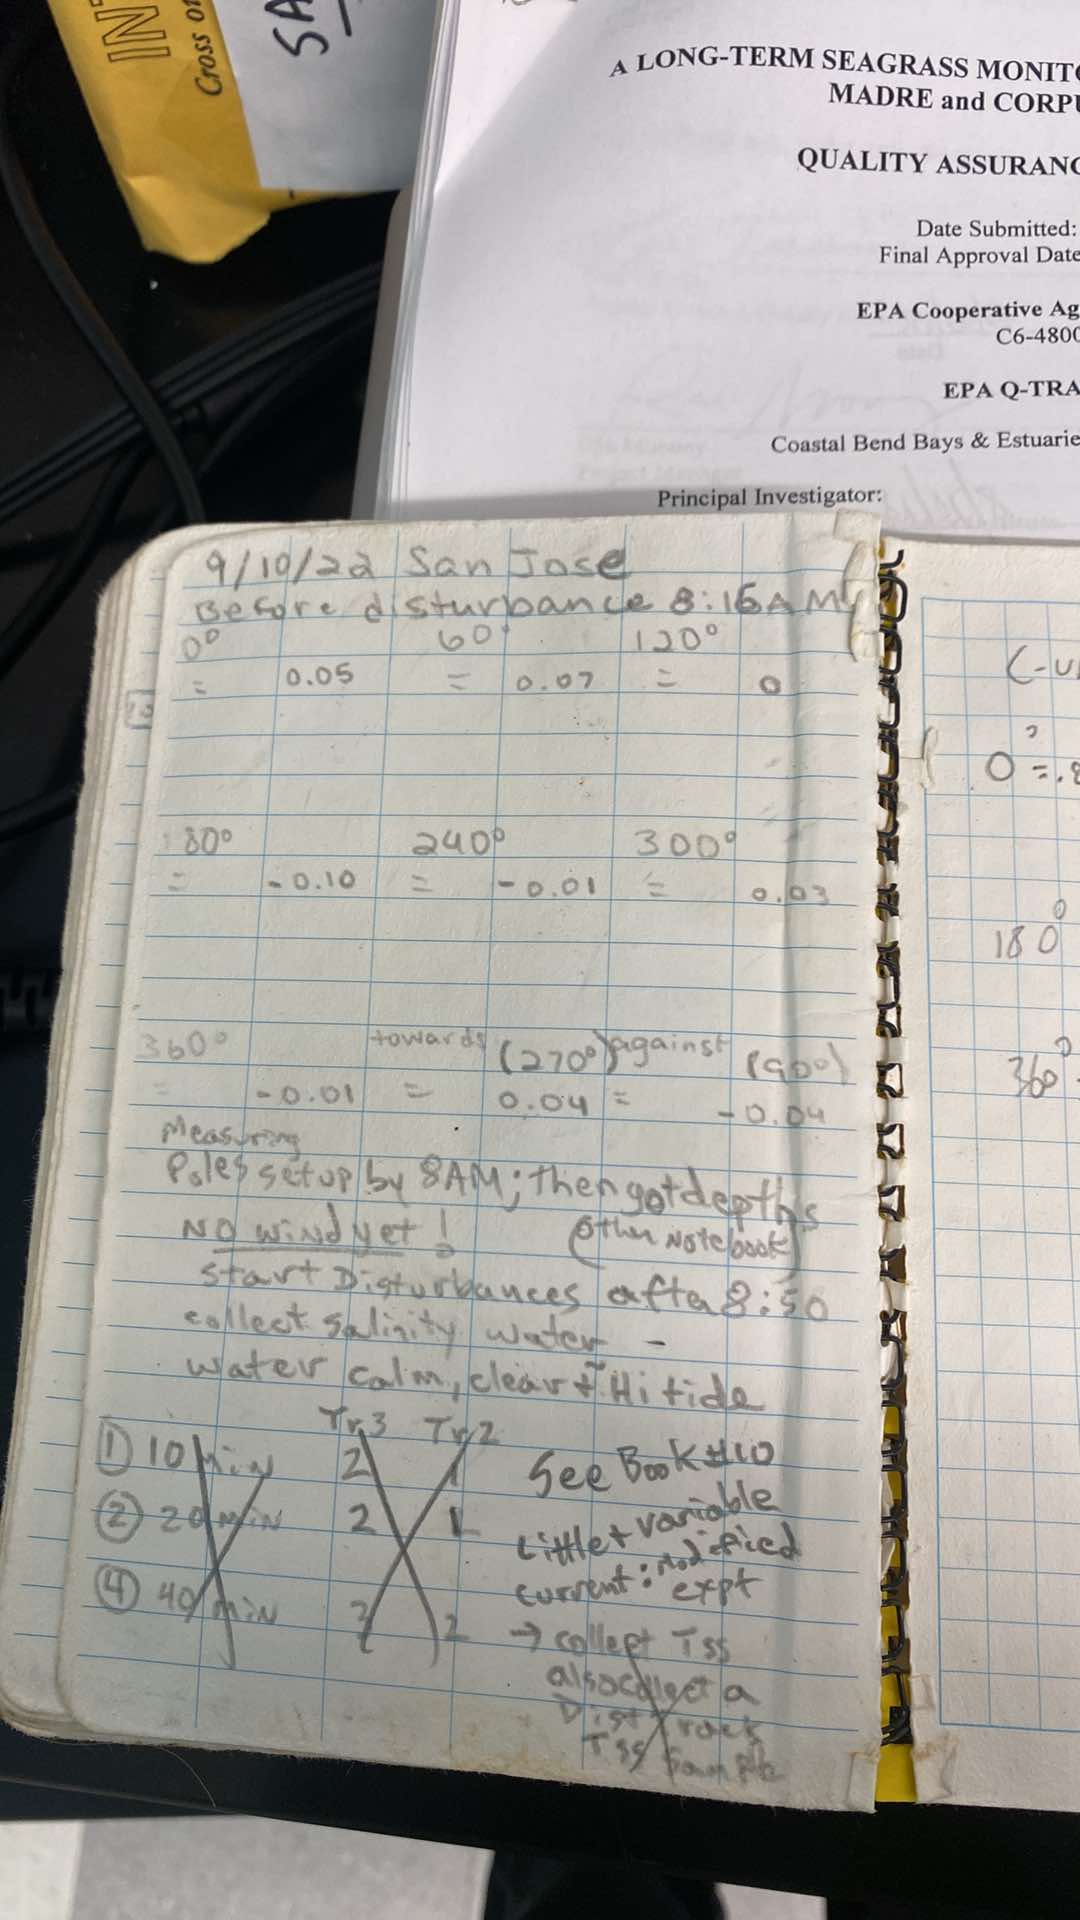 IN
Cross or
SA
A LONG-TERM SEAGRASS MONIT
MADRE and CORPU
QUALITY ASSURANC
Date Submitted:
Final Approval Date
EPA Cooperative Ag
C6-4800
EPA Q-TRA
Coastal Bend Bays & Estuarie
Principal Investigator:
9/10/22 San Jose
Before disturbance 8:15 AM
0° 60° 120°
= 0.05 = 0.07 = 0
180° 240° 300°
= -0.10 = -0.01 = 0.03
360° towards (270°) against (90°)
= -0.01 = 0.04 = -0.04
Measuring
Poles setup by 8AM; then got depths
NO wind yet! (Other Notebook)
Start Disturbances after 8:50
collect salinity water -
water calm, clear + Hi tide
Tr3 Tr2
① 10 min 2 1
② 20 min 2 1
④ 40 min 2 2
See Book #10
Little + variable
current: modified
expt
→ collect TSS
also collect a
Dist track
TSS Sample
0 = .8
180
360°